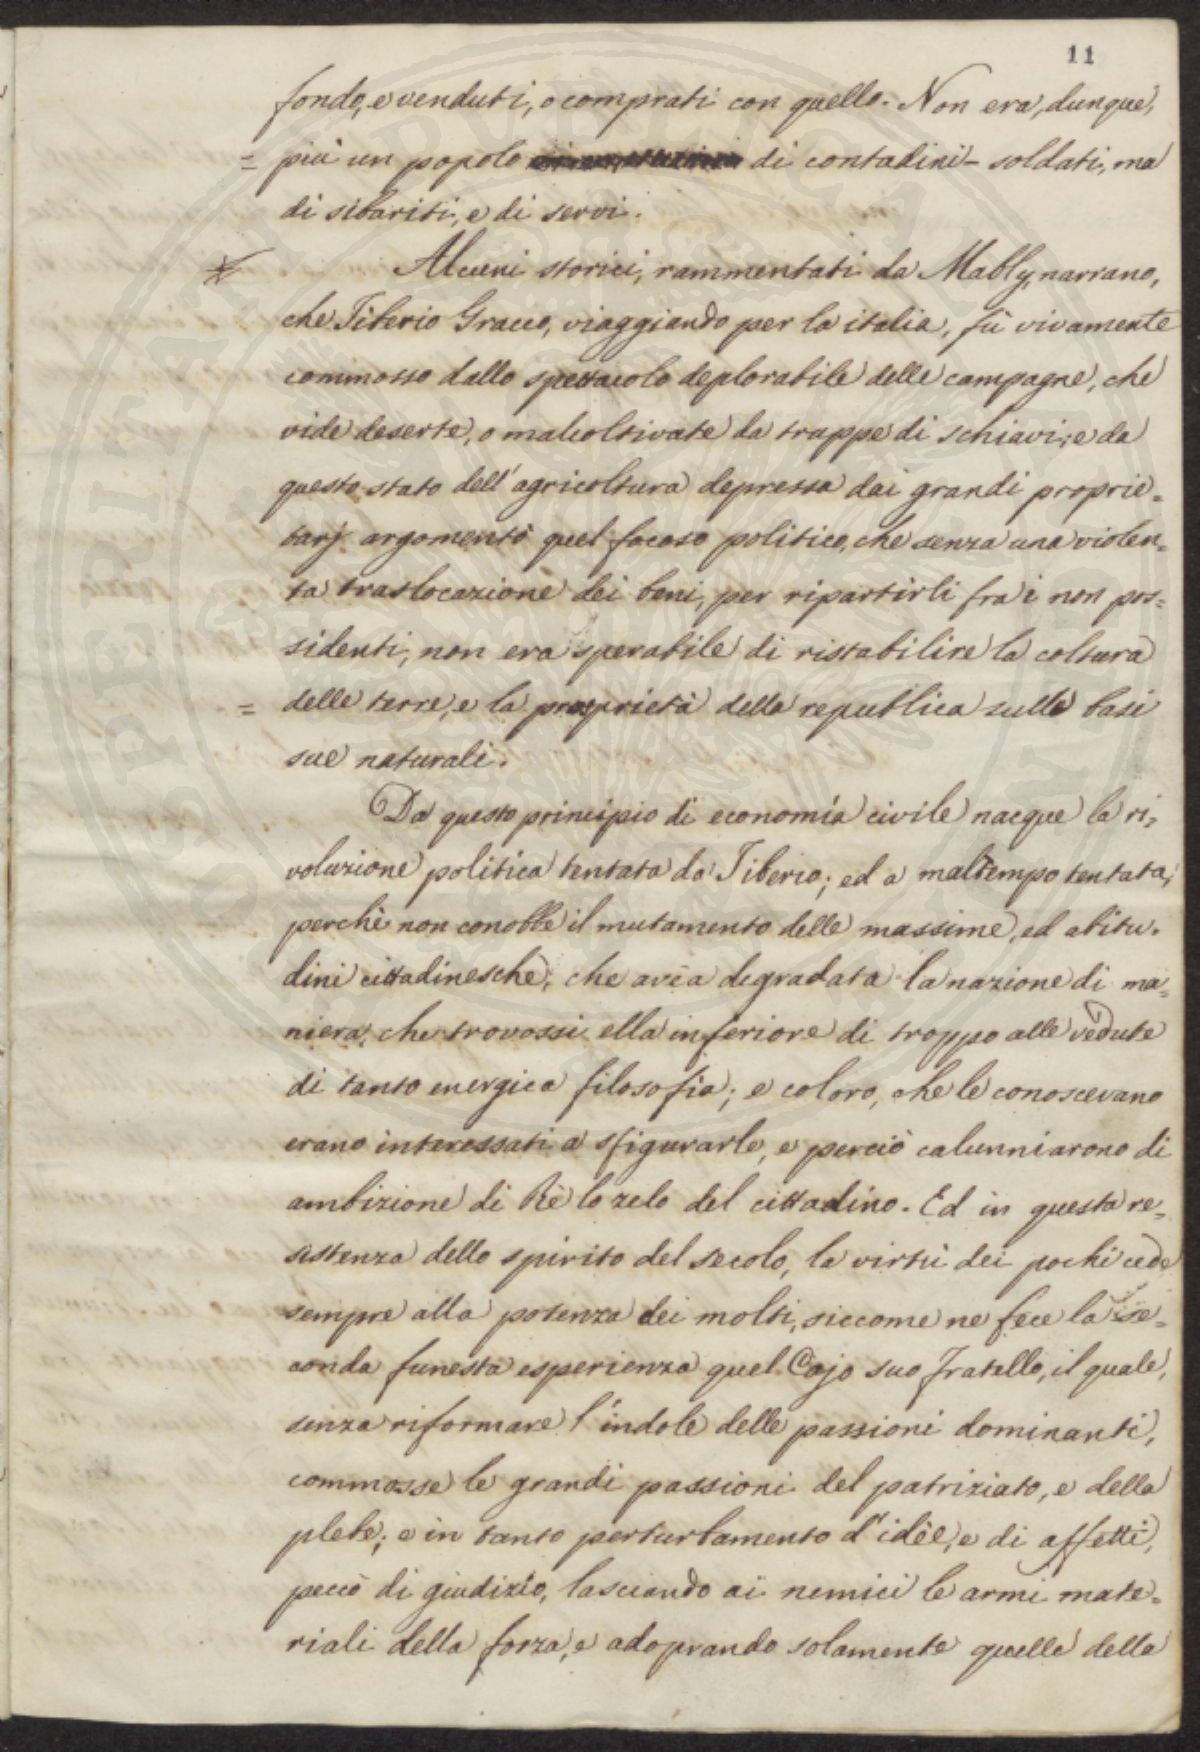 11
fondo, e venduti, o comprati con quello. Non era, dunque,
= più un popolo di contadini-soldati, ma
di sibariti, e di servi.
Alcuni storici, rammentati da Mably, narrano,
che Tiberio Gracco, viaggiando per la italia, fù vivamente
commosso dallo spettacolo deplorabile delle campagne, che
vide deserte, o malcoltivate da truppe di schiavi; e da
questo stato dell'agricoltura depressa dai grandi proprie=
tarj argomentò quel focoso politico, che senza una violen=
ta traslocazione dei beni, per ripartirli fra i non pos=
sidenti, non era sperabile di ristabilire la coltura
= delle terre, e la proprietà della republica sulle basi
sue naturali.
Da questo principio di economia civile nacque la ri=
voluzione politica tentata da Tiberio; ed a maltempo tentata,
perchè non conobbe il mutamento delle massime, ed abitu=
dini cittadinesche, che avea degradata la nazione di ma=
niera, che trovossi ella inferiore di troppo alle vedute
di tanto energica filosofia; e coloro, che le conoscevano
erano interessati a sfigurarle, e perciò calunniarono di
ambizione di Rè lo zelo del cittadino. Ed in questa re=
sistenza dello spirito del secolo, la virtù dei pochi cede
sempre alla potenza dei molti, siccome ne fece la se=
conda funesta esperienza quel Cajo suo fratello, il quale,
senza riformare l'indole delle passioni dominanti,
commosse le grandi passioni del patriziato, e della
plebe; e in tanto perturbamento d'idèe, e di affetti,
peccò di giudizio, lasciando ai nemici le armi mate=
riali della forza, e adoprando solamente quelle della